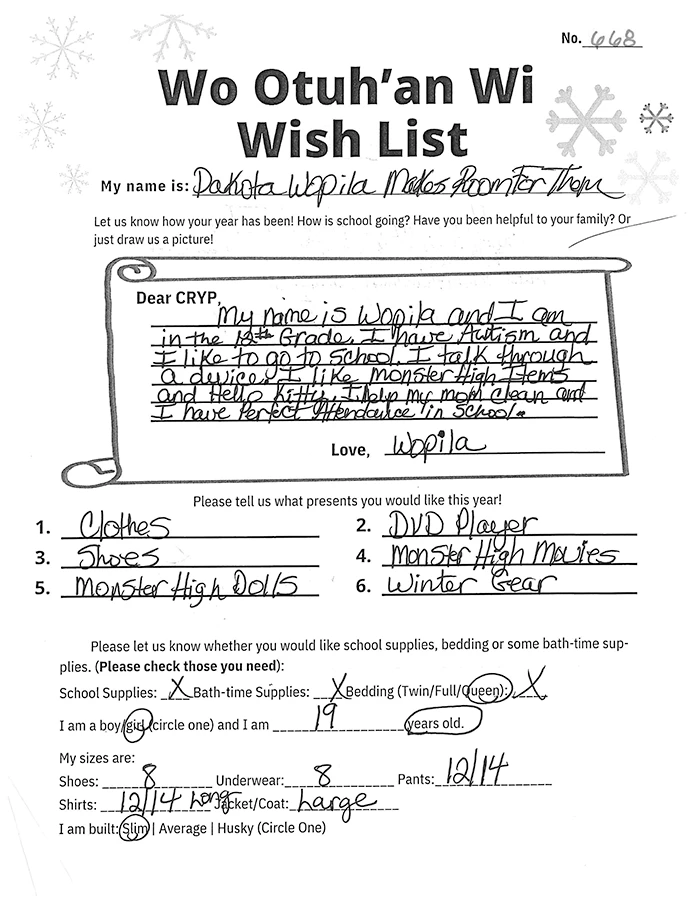 No. 668
Wo Otuh'an Wi
Wish List
My name is: Dakota Wopila Makes Room For Them
Let us know how your year has been! How is school going? Have you been helpful to your family? Or
just draw us a picture!
Dear CRYP,
My name is Wopila and I am
in the 12th Grade. I have Autism and
I like to go to School. I talk through
a device. I like Monster High Items
and Hello Kitty. I help my mom clean and
I have Perfect Attendance in School.
Love, Wopila
Please tell us what presents you would like this year!
1. Clothes 2. DVD Player
3. Shoes 4. Monster High Movies
5. Monster High Dolls 6. Winter Gear
Please let us know whether you would like school supplies, bedding or some bath-time sup-
plies. (Please check those you need):
School Supplies: X Bath-time Supplies: X Bedding (Twin/Full/Queen): X
I am a boy/girl (circle one) and I am 19 years old.
My sizes are:
Shoes: 8 Underwear: 8 Pants: 12/14
Shirts: 12/14 Long Jacket/Coat: Large
I am built: Slim | Average | Husky (Circle One)